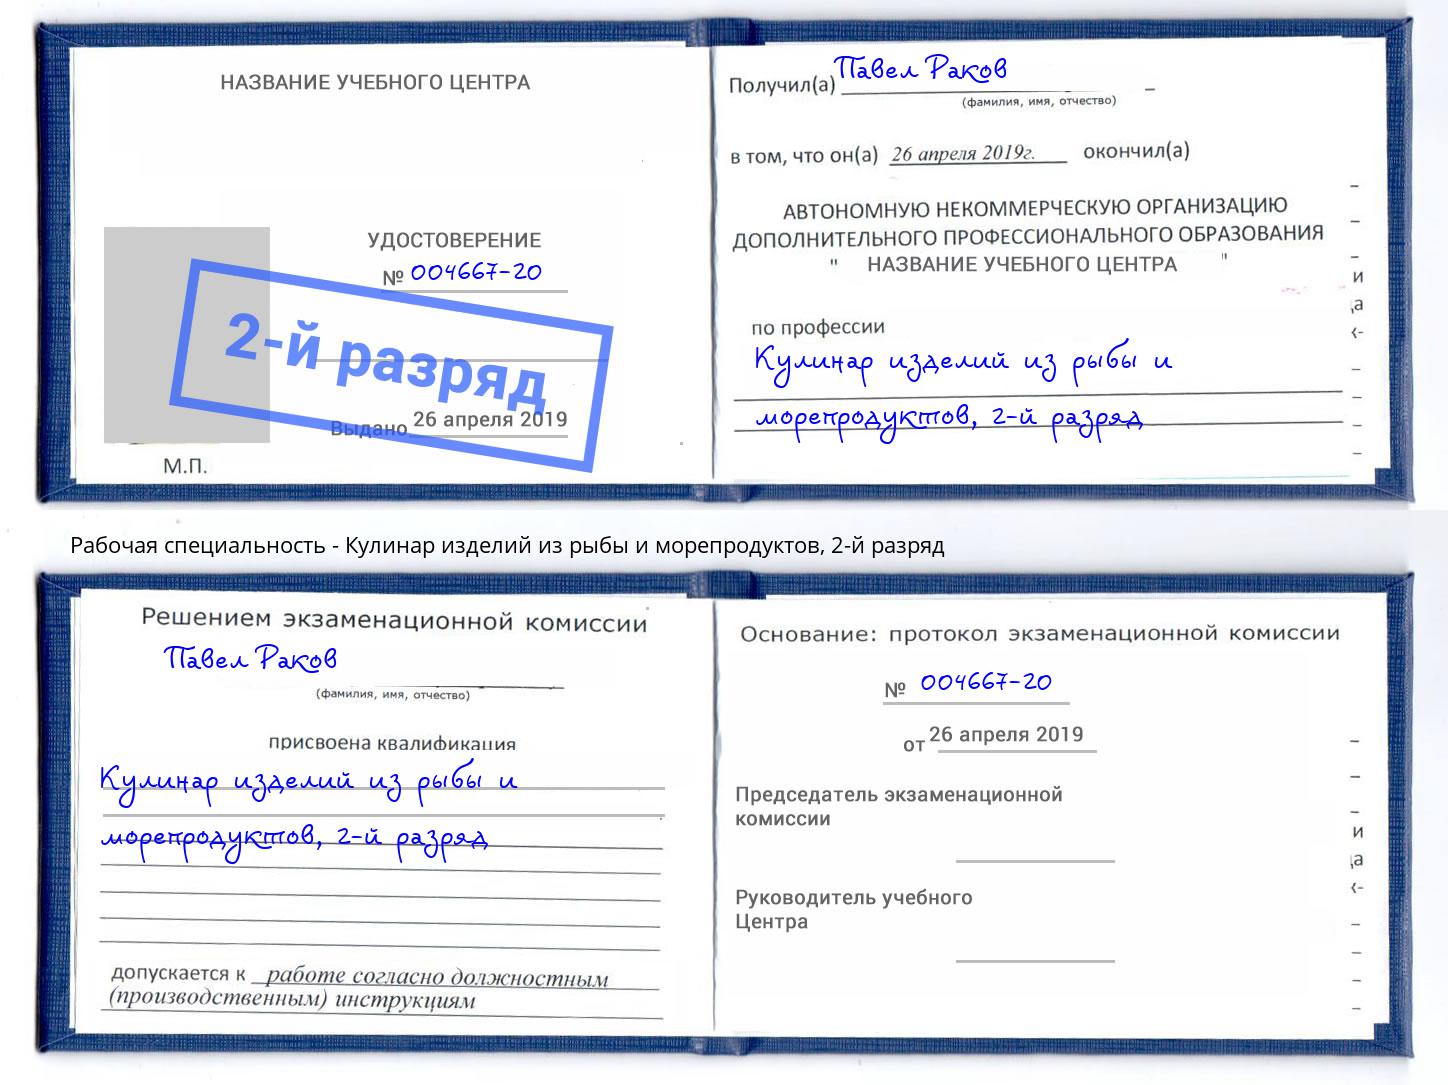 НАЗВАНИЕ УЧЕБНОГО ЦЕНТРА
УДОСТОВЕРЕНИЕ
№ 004667-20
2-й разряд
Выдано 26 апреля 2019
М.П.
Получил(а) Павел Раков
(фамилия, имя, отчество)
в том, что он(а) 26 апреля 2019г. окончил(а)
АВТОНОМНУЮ НЕКОММЕРЧЕСКУЮ ОРГАНИЗАЦИЮ
ДОПОЛНИТЕЛЬНОГО ПРОФЕССИОНАЛЬНОГО ОБРАЗОВАНИЯ
" НАЗВАНИЕ УЧЕБНОГО ЦЕНТРА "
по профессии
Кулинар изделий из рыбы и
морепродуктов, 2-й разряд
Рабочая специальность - Кулинар изделий из рыбы и морепродуктов, 2-й разряд
Решением экзаменационной комиссии
Павел Раков
(фамилия, имя, отчество)
присвоена квалификация
Кулинар изделий из рыбы и
морепродуктов, 2-й разряд
допускается к работе согласно должностным
(производственным) инструкциям
Основание: протокол экзаменационной комиссии
№ 004667-20
от 26 апреля 2019
Председатель экзаменационной
комиссии
Руководитель учебного
Центра